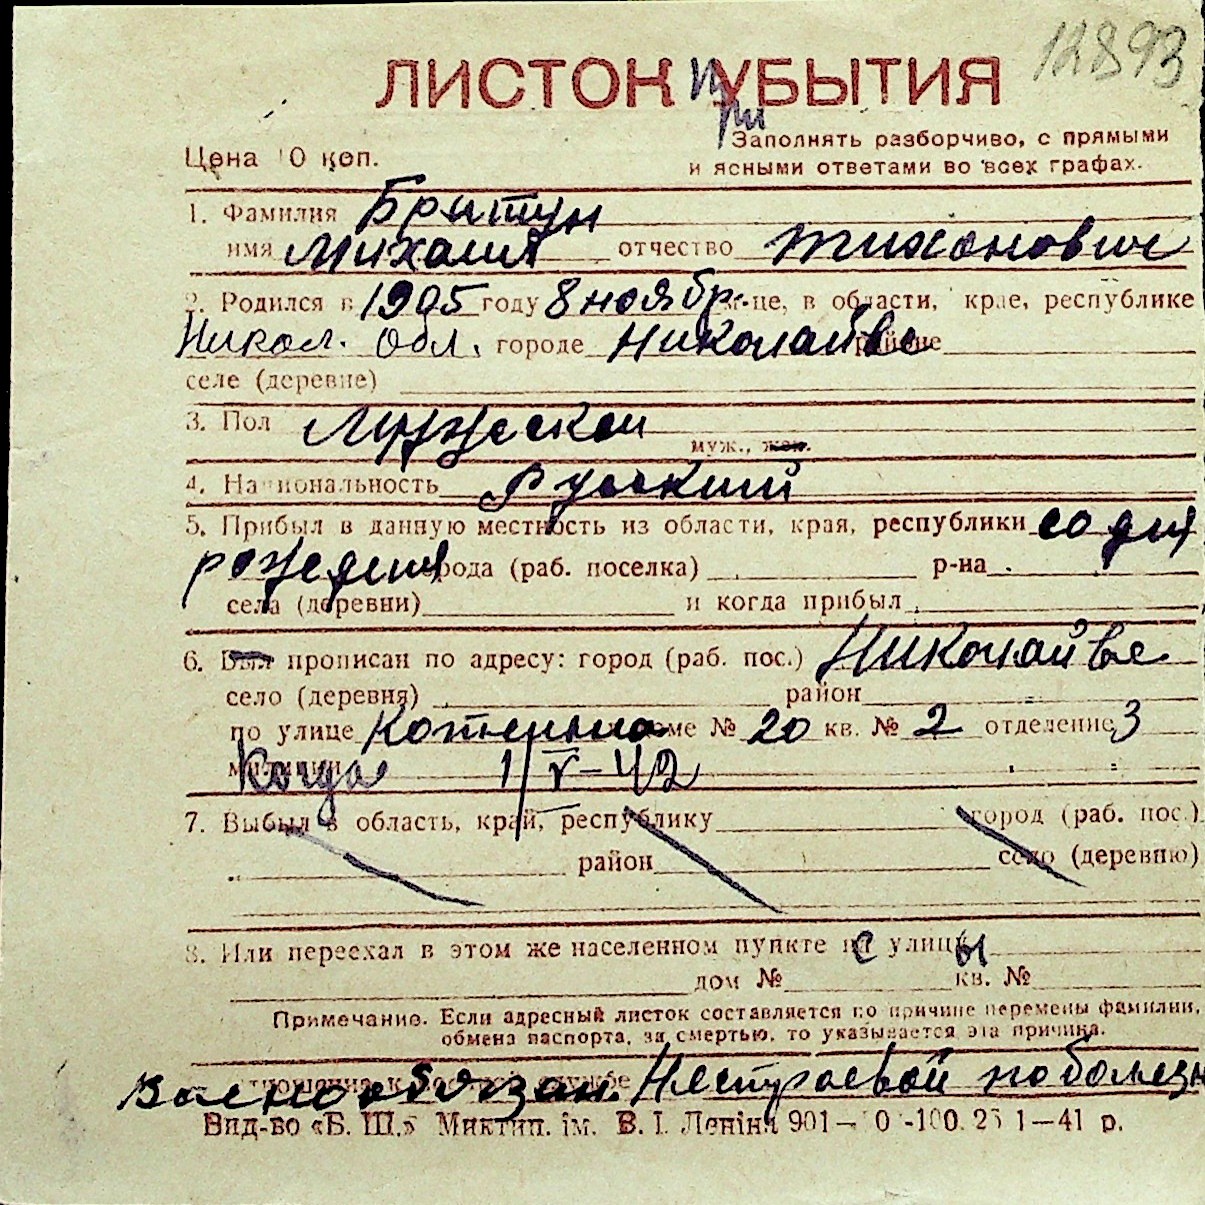 12893
ЛИСТОК УБЫТИЯ
при
Заполнять разборчиво, с прямыми
Цена 10 коп.
и ясными ответами во всех графах.
1. Фамилия Бритун
имя Михаил отчество Тихонович
2. Родился в 1905 году 8 ноябр. м-це, в области, крае, республике
Никол. обл. городе Николаеве районе
селе (деревне)
3. Пол Мужской
муж., жен.
4. Национальность Русский
5. Прибыл в данную местность из области, края, республики со дня
рождения города (раб. поселка) р-на
села (деревни) и когда прибыл
6. Был прописан по адресу: город (раб. пос.) Николайве
село (деревня) район
по улице доме № 20 кв. № 2 отделение 3
милиции Когда 1/V-42
7. Выбыл в область, край, республику город (раб. пос.)
район село (деревню)
8. Или переехал в этом же населенном пункте с улицы
дом № кв. №
Примечание. Если адресный листок составляется по причине перемены фамилии,
обмена паспорта, за смертью, то указывается эта причина.
Военнообязан. Нестроевой по болезн
Вид-во «Б. Ш.» Миктип. ім. В. І. Леніна 901— 0 -100. 25 1—41 р.